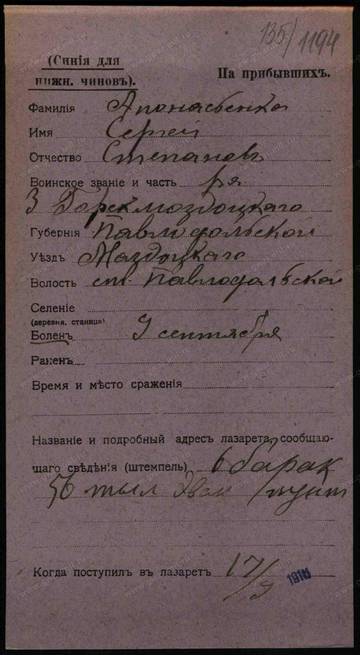 135/1194
(Синія для
нижн. чиновъ).
На прибывшихъ.
Фамилія Апонасьенко
Имя Сергей
Отчество Степановъ
Воинское званіе и часть р-я
3 Горск-моздоцкаго
Губернія Павлодольской
Уѣздъ Моздоцкаго
Волость ст. Павлодольской
Селеніе
(деревня, станица)
Боленъ 9 сентября
Раненъ
Время и мѣсто сраженія
Названіе и подробный адресъ лазарета, сообщаю-
щаго свѣдѣнія (штемпель) 6 барак
56 тыл Эвак пункт
Когда поступилъ въ лазаретъ 17/9 1916